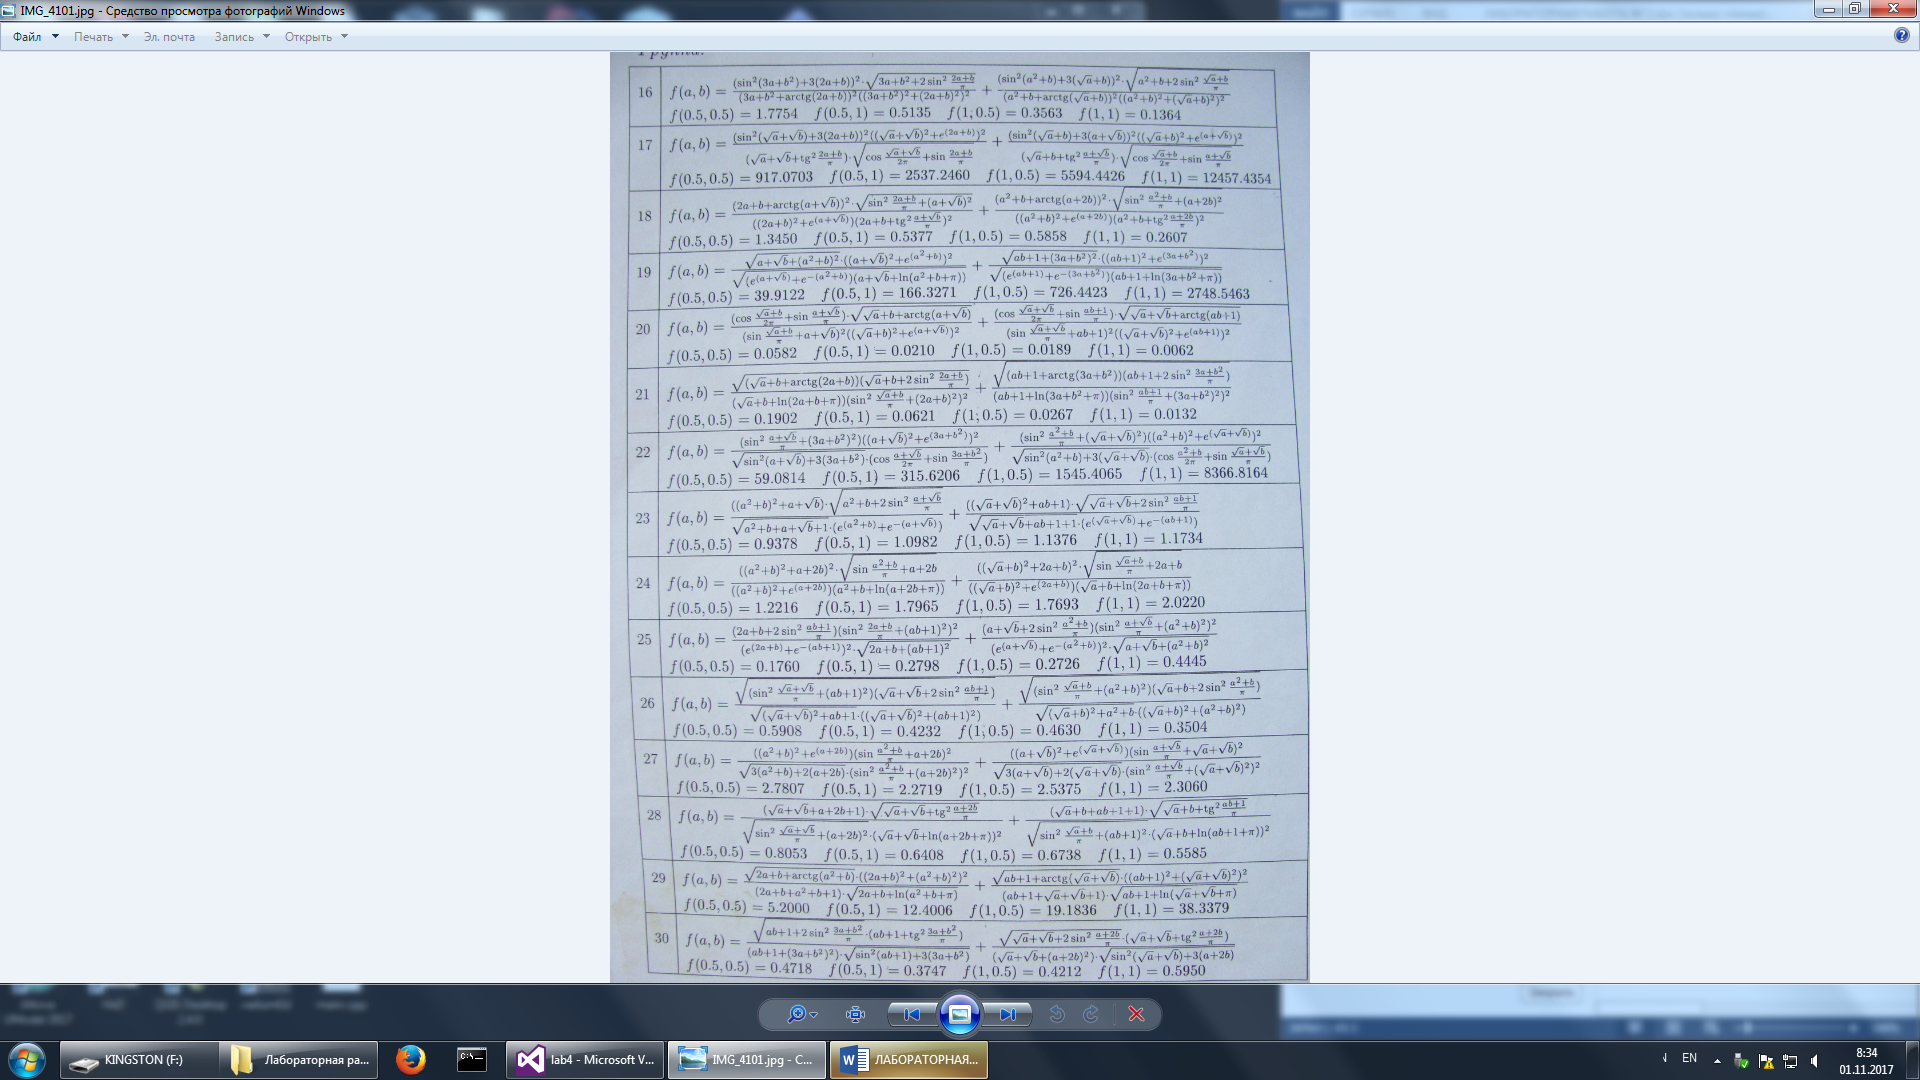 IMG_4101.jpg - Средство просмотра фотографий Windows
Файл Печать Эл. почта Запись Открыть
16 f(a,b) = \frac{(sin²(3a+b²)+3(2a+b))²·√(3a+b²+2 sin² \frac{2a+b}{π})}{(3a+b²+arctg(2a+b))²((3a+b²)²+(2a+b)²)²} + \frac{(sin²(a²+b)+3(√a+b))²·√(a²+b+2 sin² \frac{√a+b}{π})}{(a²+b+arctg(√a+b))²((a²+b)²+(√a+b)²)²}
f(0.5,0.5) = 1.7754 f(0.5,1) = 0.5135 f(1,0.5) = 0.3563 f(1,1) = 0.1364
17 f(a,b) = \frac{(sin²(√a+√b)+3(2a+b))²((√a+√b)²+e^{(2a+b)})²}{(√a+√b+tg² \frac{2a+b}{π})·√(cos \frac{√a+√b}{2π}+sin \frac{2a+b}{π})} + \frac{(sin²(√a+b)+3(a+√b))²((√a+b)²+e^{(a+√b)})²}{(√a+b+tg² \frac{a+√b}{π})·√(cos \frac{√a+b}{2π}+sin \frac{a+√b}{π})}
f(0.5,0.5) = 917.0703 f(0.5,1) = 2537.2460 f(1,0.5) = 5594.4426 f(1,1) = 12457.4354
18 f(a,b) = \frac{(2a+b+arctg(a+√b))²·√(sin² \frac{2a+b}{π}+(a+√b)²)}{((2a+b)²+e^{(a+√b)})(2a+b+tg² \frac{a+√b}{π})²} + \frac{(a²+b+arctg(a+2b))²·√(sin² \frac{a²+b}{π}+(a+2b)²)}{((a²+b)²+e^{(a+2b)})(a²+b+tg² \frac{a+2b}{π})²}
f(0.5,0.5) = 1.3450 f(0.5,1) = 0.5377 f(1,0.5) = 0.5858 f(1,1) = 0.2607
19 f(a,b) = \frac{√(a+√b+(a²+b)²)·((a+√b)²+e^{(a²+b)})²}{√((e^{(a+√b)}+e^{-(a²+b)})(a+√b+ln(a²+b+π)))} + \frac{√(ab+1+(3a+b²)²)·((ab+1)²+e^{(3a+b²)})²}{√((e^{(ab+1)}+e^{-(3a+b²)})(ab+1+ln(3a+b²+π)))}
f(0.5,0.5) = 39.9122 f(0.5,1) = 166.3271 f(1,0.5) = 726.4423 f(1,1) = 2748.5463
20 f(a,b) = \frac{(cos \frac{√a+b}{2π}+sin \frac{a+√b}{π})·√(√a+b+arctg(a+√b))}{(sin \frac{√a+b}{π}+a+√b)²((√a+b)²+e^{(a+√b)})²} + \frac{(cos \frac{√a+√b}{2π}+sin \frac{ab+1}{π})·√(√a+√b+arctg(ab+1))}{(sin \frac{√a+√b}{π}+ab+1)²((√a+√b)²+e^{(ab+1)})²}
f(0.5,0.5) = 0.0582 f(0.5,1) = 0.0210 f(1,0.5) = 0.0189 f(1,1) = 0.0062
21 f(a,b) = \frac{√((√a+b+arctg(2a+b))(√a+b+2 sin² \frac{2a+b}{π}))}{(√a+b+ln(2a+b+π))(sin² \frac{√a+b}{π}+(2a+b)²)²} + \frac{√((ab+1+arctg(3a+b²))(ab+1+2 sin² \frac{3a+b²}{π}))}{(ab+1+ln(3a+b²+π))(sin² \frac{ab+1}{π}+(3a+b²)²)²}
f(0.5,0.5) = 0.1902 f(0.5,1) = 0.0621 f(1,0.5) = 0.0267 f(1,1) = 0.0132
22 f(a,b) = \frac{(sin² \frac{a+√b}{π}+(3a+b²)²)((a+√b)²+e^{(3a+b²)})²}{√(sin²(a+√b)+3(3a+b²))·(cos \frac{a+√b}{2π}+sin \frac{3a+b²}{π})} + \frac{(sin² \frac{a²+b}{π}+(√a+√b)²)((a²+b)²+e^{(√a+√b)})²}{√(sin²(a²+b)+3(√a+√b))·(cos \frac{a²+b}{2π}+sin \frac{√a+√b}{π})}
f(0.5,0.5) = 59.0814 f(0.5,1) = 315.6206 f(1,0.5) = 1545.4065 f(1,1) = 8366.8164
23 f(a,b) = \frac{((a²+b)²+a+√b)·√(a²+b+2 sin² \frac{a+√b}{π})}{√(a²+b+a+√b+1)·(e^{(a²+b)}+e^{-(a+√b)})} + \frac{((√a+√b)²+ab+1)·√(√a+√b+2 sin² \frac{ab+1}{π})}{√(√a+√b+ab+1+1)·(e^{(√a+√b)}+e^{-(ab+1)})}
f(0.5,0.5) = 0.9378 f(0.5,1) = 1.0982 f(1,0.5) = 1.1376 f(1,1) = 1.1734
24 f(a,b) = \frac{((a²+b)²+a+2b)²·√(sin \frac{a²+b}{π}+a+2b)}{((a²+b)²+e^{(a+2b)})(a²+b+ln(a+2b+π))} + \frac{((√a+b)²+2a+b)²·√(sin \frac{√a+b}{π}+2a+b)}{((√a+b)²+e^{(2a+b)})(√a+b+ln(2a+b+π))}
f(0.5,0.5) = 1.2216 f(0.5,1) = 1.7965 f(1,0.5) = 1.7693 f(1,1) = 2.0220
25 f(a,b) = \frac{(2a+b+2 sin² \frac{ab+1}{π})(sin² \frac{2a+b}{π}+(ab+1)²)²}{(e^{(2a+b)}+e^{-(ab+1)})²·√(2a+b+(ab+1)²)} + \frac{(a+√b+2 sin² \frac{a²+b}{π})(sin² \frac{a+√b}{π}+(a²+b)²)²}{(e^{(a+√b)}+e^{-(a²+b)})²·√(a+√b+(a²+b)²)}
f(0.5,0.5) = 0.1760 f(0.5,1) = 0.2798 f(1,0.5) = 0.2726 f(1,1) = 0.4445
26 f(a,b) = \frac{√((sin² \frac{√a+√b}{π}+(ab+1)²)(√a+√b+2 sin² \frac{ab+1}{π}))}{√((√a+√b)²+ab+1)·((√a+√b)²+(ab+1)²)} + \frac{√((sin² \frac{√a+b}{π}+(a²+b)²)(√a+b+2 sin² \frac{a²+b}{π}))}{√((√a+b)²+a²+b)·((√a+b)²+(a²+b)²)}
f(0.5,0.5) = 0.5908 f(0.5,1) = 0.4232 f(1,0.5) = 0.4630 f(1,1) = 0.3504
27 f(a,b) = \frac{((a²+b)²+e^{(a+2b)})(sin \frac{a²+b}{π}+a+2b)²}{√(3(a²+b)+2(a+2b))·(sin² \frac{a²+b}{π}+(a+2b)²)²} + \frac{((a+√b)²+e^{(√a+√b)})(sin \frac{a+√b}{π}+√a+√b)²}{√(3(a+√b)+2(√a+√b))·(sin² \frac{a+√b}{π}+(√a+√b)²)²}
f(0.5,0.5) = 2.7807 f(0.5,1) = 2.2719 f(1,0.5) = 2.5375 f(1,1) = 2.3060
28 f(a,b) = \frac{(√a+√b+a+2b+1)·√(√a+√b+tg² \frac{a+2b}{π})}{√(sin² \frac{√a+√b}{π}+(a+2b)²)·(√a+√b+ln(a+2b+π))²} + \frac{(√a+b+ab+1+1)·√(√a+b+tg² \frac{ab+1}{π})}{√(sin² \frac{√a+b}{π}+(ab+1)²)·(√a+b+ln(ab+1+π))²}
f(0.5,0.5) = 0.8053 f(0.5,1) = 0.6408 f(1,0.5) = 0.6738 f(1,1) = 0.5585
29 f(a,b) = \frac{√(2a+b+arctg(a²+b))·((2a+b)²+(a²+b)²)²}{(2a+b+a²+b+1)·√(2a+b+ln(a²+b+π))} + \frac{√(ab+1+arctg(√a+√b))·((ab+1)²+(√a+√b)²)²}{(ab+1+√a+√b+1)·√(ab+1+ln(√a+√b+π))}
f(0.5,0.5) = 5.2000 f(0.5,1) = 12.4006 f(1,0.5) = 19.1836 f(1,1) = 38.3379
30 f(a,b) = \frac{√(ab+1+2 sin² \frac{3a+b²}{π})·(ab+1+tg² \frac{3a+b²}{π})}{(ab+1+(3a+b²)²)·√(sin²(ab+1)+3(3a+b²))} + \frac{√(√a+√b+2 sin² \frac{a+2b}{π})·(√a+√b+tg² \frac{a+2b}{π})}{(√a+√b+(a+2b)²)·√(sin²(√a+√b)+3(a+2b))}
f(0.5,0.5) = 0.4718 f(0.5,1) = 0.3747 f(1,0.5) = 0.4212 f(1,1) = 0.5950
KINGSTON (F:) Лабораторная ра... lab4 - Microsoft V... IMG_4101.jpg - С... ЛАБОРАТОРНАЯ... EN 8:34
01.11.2017